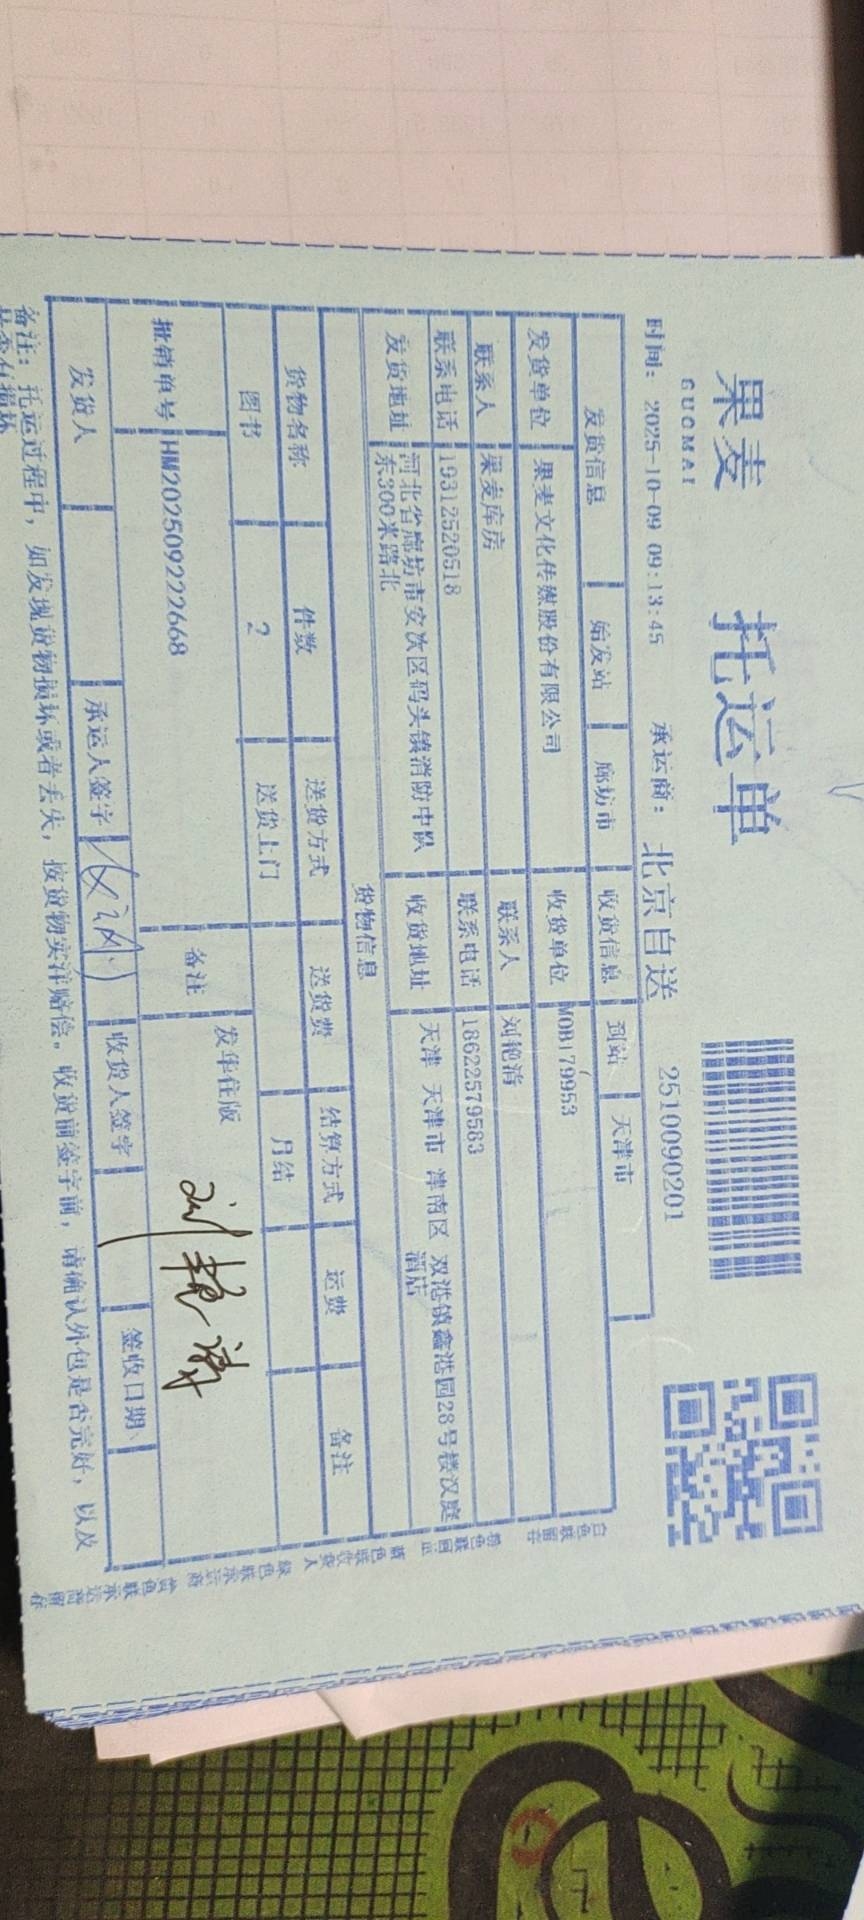 果麦
GUOMAI
托运单
时间: 2025-10-09 09:13:45 承运商: 北京自送 2510090201
发货信息 始发站 廊坊市 收货信息 到站 天津市
发货单位 果麦文化传媒股份有限公司 收货单位 MOB179953
联系人 果麦库房 联系人 刘艳清
联系电话 19312520518 联系电话 18622579583
发货地址 河北省廊坊市安次区码头镇消防中队东300米路北 收货地址 天津 天津市 津南区 双港镇鑫港园28号楼汉庭酒店
货物信息
货物名称 件数 送货方式 送货费 结算方式 运费 备注
图书 2 送货上门 月结
批销单号 HM202509222668 备注 发华住版
刘艳清
发货人 承运人签字 收货人签字 签收日期
备注: 托运过程中, 如发现货物损坏或者丢失, 按货物实洋赔偿。收货前签字前, 请确认外包是否完好, 以及
是否有损坏
白色联留存
粉色联回单
蓝色联收货人
绿色联承运商
黄色联承运商留存